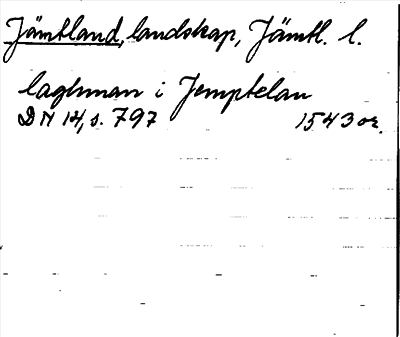 Jämtland, landskap, Jämtl. l.
laghman i Jemptelan
DN 14, s. 797 1543 or.